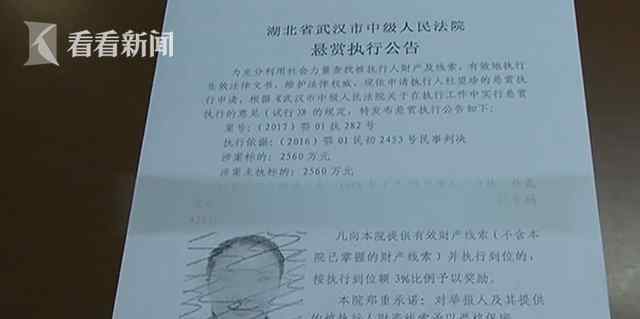 看看新闻
湖北省武汉市中级人民法院
悬赏执行公告
为充分利用社会力量查找被执行人财产及线索，有效地执行
生效法律文书，维护法律权威，现依申请执行人杜望珍的悬赏
执行申请，根据《武汉市中级人民法院关于在执行工作中实行悬赏
执行的意见（试行）》的规定，特发布悬赏执行公告如下：
案号：（2017）鄂 01 执 282 号
执行依据：（2016）鄂 01 民初 2453 号民事判决
涉案标的：2560 万元
涉案未执标的：2560 万元
凡向本院提供有效财产线索（不含本
院已掌握的财产线索）并执行到位的，
按执行到位额 3%比例予以奖励。
本院郑重承诺：对举报人及其提供
的被执行人财产线索予以严格保密